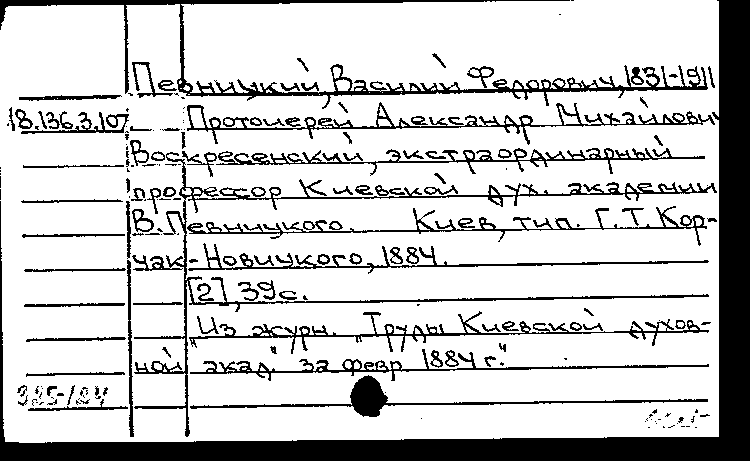 Певницкий, Василий Федорович, 1831-1911
18.136.3.107 Протоиерей Александр Михайлович
Воскресенский, экстраординарный
профессор Киевской дух. академии
В. Певницкого. Киев, тип. Г. Т. Кор-
чак-Новицкого, 1884.
[2], 39 с.
"Из журн. "Труды Киевской духов-
ной акад." за февр 1884 г."
325-124